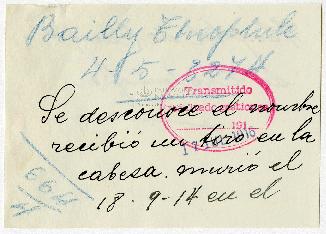 Bailly Theophile
4-5-3274
Transmitido
191
17 1915
Se desconoce el nombre
recibió un tiro en la
cabesa. murió el
18-9-14 en el